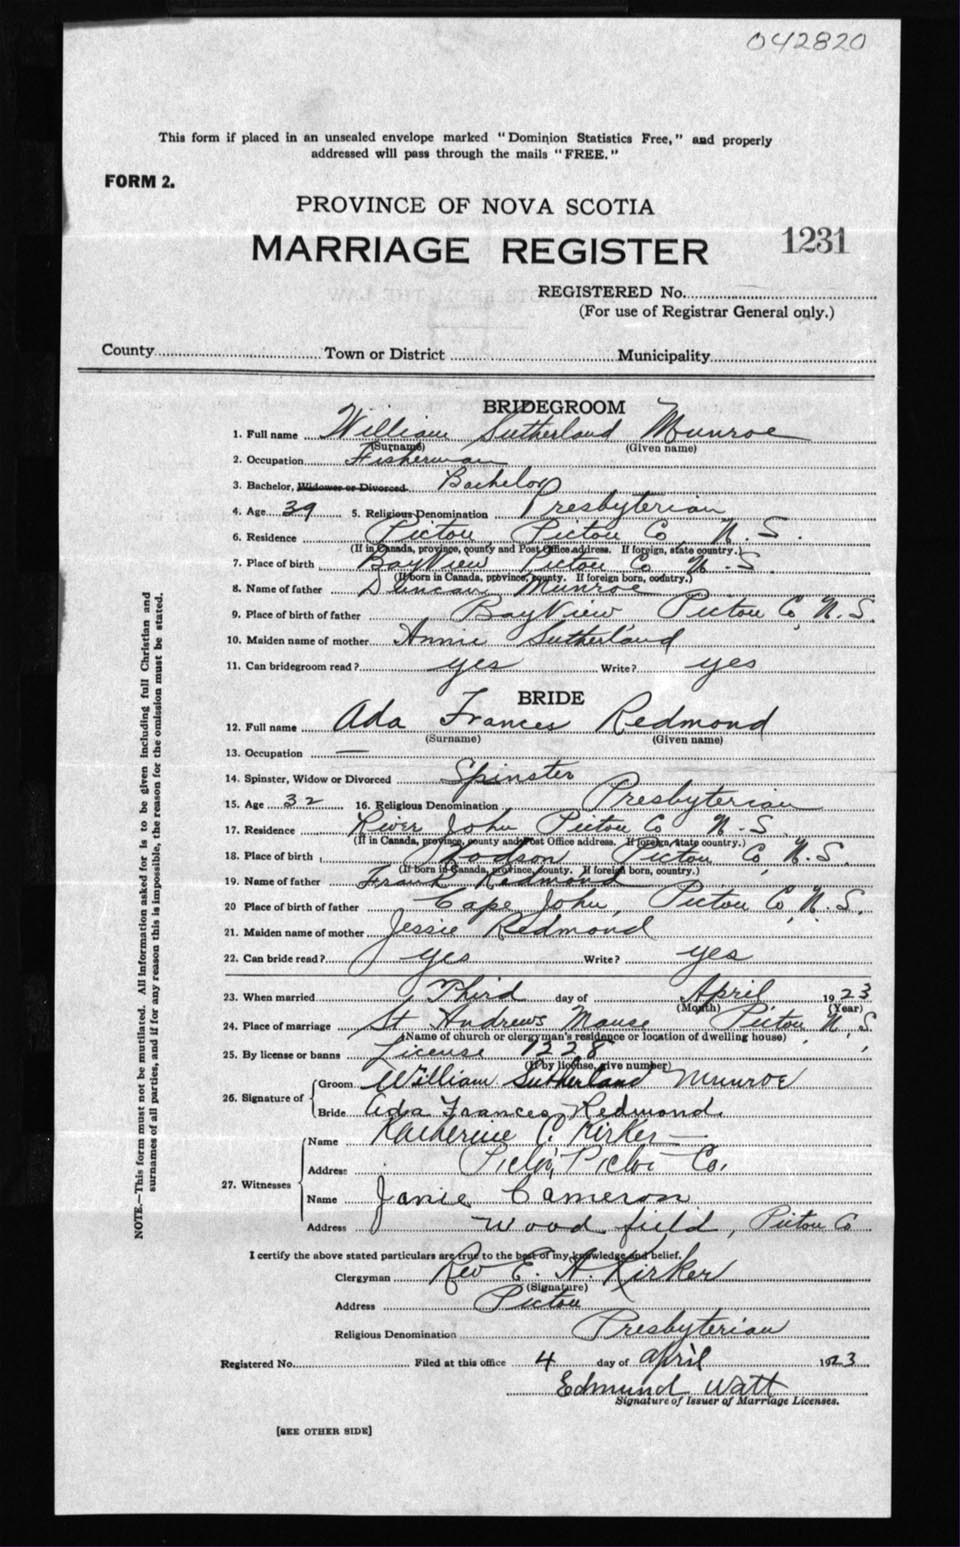 042820
This form if placed in an unsealed envelope marked "Dominion Statistics Free," and properly
addressed will pass through the mails "FREE."
FORM 2.
PROVINCE OF NOVA SCOTIA
MARRIAGE REGISTER 1231
REGISTERED No.
(For use of Registrar General only.)
County Town or District Municipality
BRIDEGROOM
1. Full name William Sutherland Munroe
(Surname) (Given name)
2. Occupation Fisherman
3. Bachelor, Widower or Divorced Bachelor
4. Age 39 5. Religious Denomination Presbyterian
6. Residence Pictou Pictou Co, N.S.
(If in Canada, province, county and Post Office address. If foreign, state country.)
7. Place of birth BayView Pictou Co N.S.
(If born in Canada, province, county. If foreign born, country.)
8. Name of father Duncan Munroe
9. Place of birth of father BayView Pictou Co, N.S.
10. Maiden name of mother Annie Sutherland
11. Can bridegroom read? yes Write? yes
BRIDE
12. Full name Ada Frances Redmond
(Surname) (Given name)
13. Occupation —
14. Spinster, Widow or Divorced Spinster
15. Age 32 16. Religious Denomination Presbyterian
17. Residence River John Pictou Co N.S.
(If in Canada, province, county and Post Office address. If foreign, state country.)
18. Place of birth Hodson Pictou Co, N.S.
(If born in Canada, province, county. If foreign born, country.)
19. Name of father Frank Redmond
20 Place of birth of father Cape John, Pictou Co, N.S.
21. Maiden name of mother Jessie Redmond
22. Can bride read? yes Write? yes
23. When married Third day of April 1923
(Month) (Year)
24. Place of marriage St Andrews Manse Pictou, N.S.
(Name of church or clergyman's residence or location of dwelling house)
25. By license or banns License 1228
(If by license, give number)
26. Signature of
Groom William Sutherland Munroe
Bride Ada Frances Redmond.
27. Witnesses
Name Katherine C. Kirker
Address Pictou, Pictou Co.
Name Janie Cameron
Address Woodfield, Pictou Co
I certify the above stated particulars are true to the best of my knowledge and belief.
Clergyman Rev E. A. Kirker
(Signature)
Address Pictou
Religious Denomination Presbyterian
Registered No. Filed at this office 4 day of April 1923
Edmund Watt
Signature of Issuer of Marriage Licenses.
[SEE OTHER SIDE]
NOTE.—This form must not be mutilated. All information asked for is to be given including full Christian and
surnames of all parties, and if for any reason this is impossible, the reason for the omission must be stated.